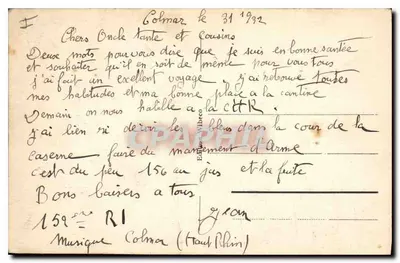 I
Colmar le 31 1932
Chers Oncle tante et cousins
Deux mots pour vous dire que je suis en bonne santee
et souhaiter qu'il en soit de même pour vous tous
j'ai fait un excellent voyage. j'ai retrouvé toutes
mes habitudes et ma bonne place a la cantine
Demain on nous habille a la CHR.
j'ai bien ri de voir les bleus dans la cour de la
caserne faire du maniement d'Arme
c'est du peu 156 au jus et la fuite
Bons baisers a tous
Jean
152ème RI
Musique Colmar (Haut Rhin)